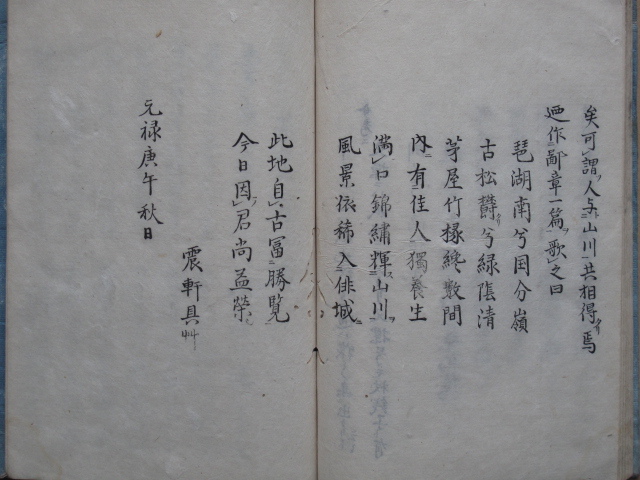 矣可謂人与山川共相得焉
迺作鄙章一篇歌之曰
琵湖南兮国分嶺
古松欝兮緑陰清
茅屋竹椽纔敷間
内有佳人獨養生
満口錦繍輝山川
風景依稀入俳城
此地自古冨勝覧
今日因君尚益榮
元禄庚午秋日
震軒具艸